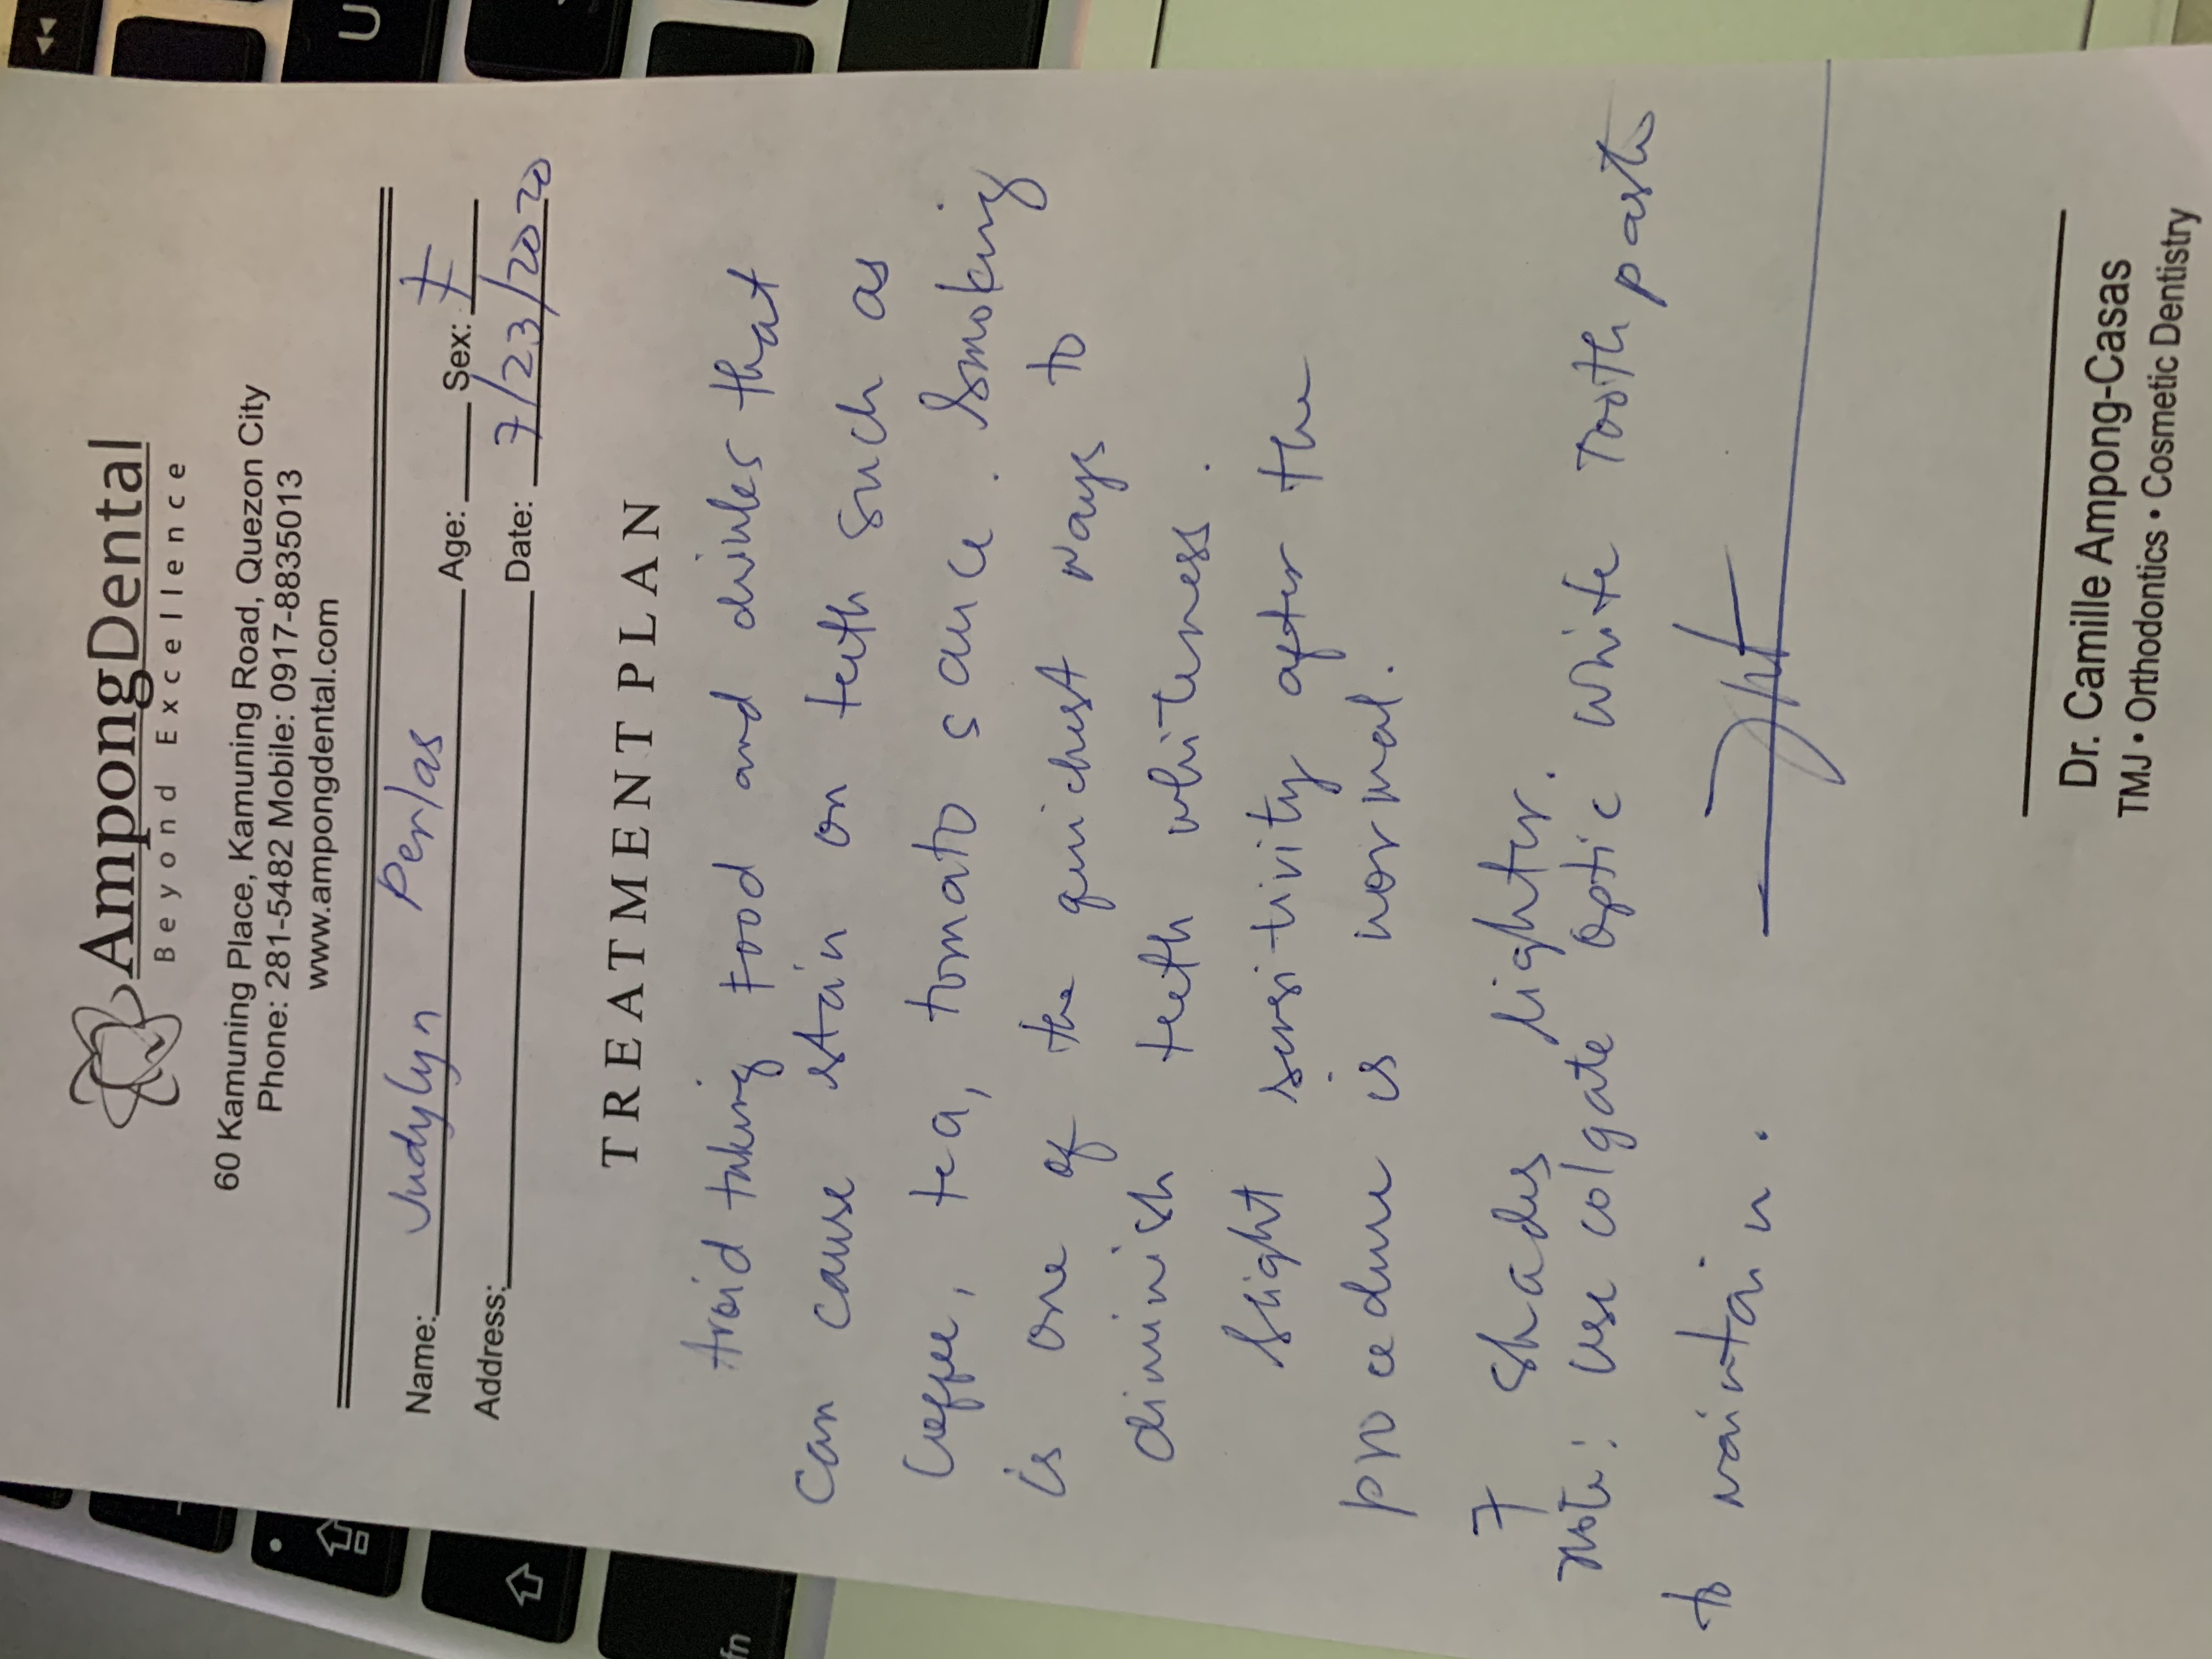 AmpongDental
Beyond Excellence
60 Kamuning Place, Kamuning Road, Quezon City
Phone: 281-5482 Mobile: 0917-8835013
www.ampongdental.com
Name: Judylyn Perlas Age: Sex: F
Address: Date: 7/23/2020
TREATMENT PLAN
Avoid taking Food and drinks that
can cause stain on teeth such as
Coffee, tea, tomato sauce. Smoking
is one of the quickest ways to
diminish teeth whiteness.
Slight sensitivity after the
procedure is normal.
7 shades lighter.
Note: Use colgate Optic White Toothpaste
to maintain.
Dr. Camille Ampong-Casas
TMJ • Orthodontics • Cosmetic Dentistry
fn
U